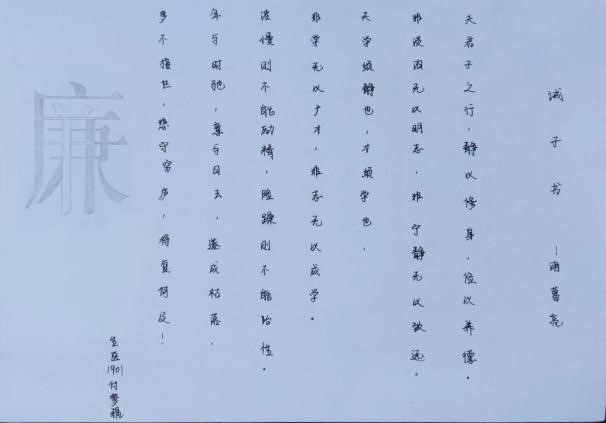 诫子书 —诸葛亮
夫君子之行，静以修身，俭以养德。
非淡泊无以明志，非宁静无以致远。
夫学须静也，才须学也，
非学无以广才，非志无以成学。
淫慢则不能励精，险躁则不能治性。
年与时驰，意与日去，遂成枯落，
多不接世，悲守穷庐，将复何及！
1901付梦
廉